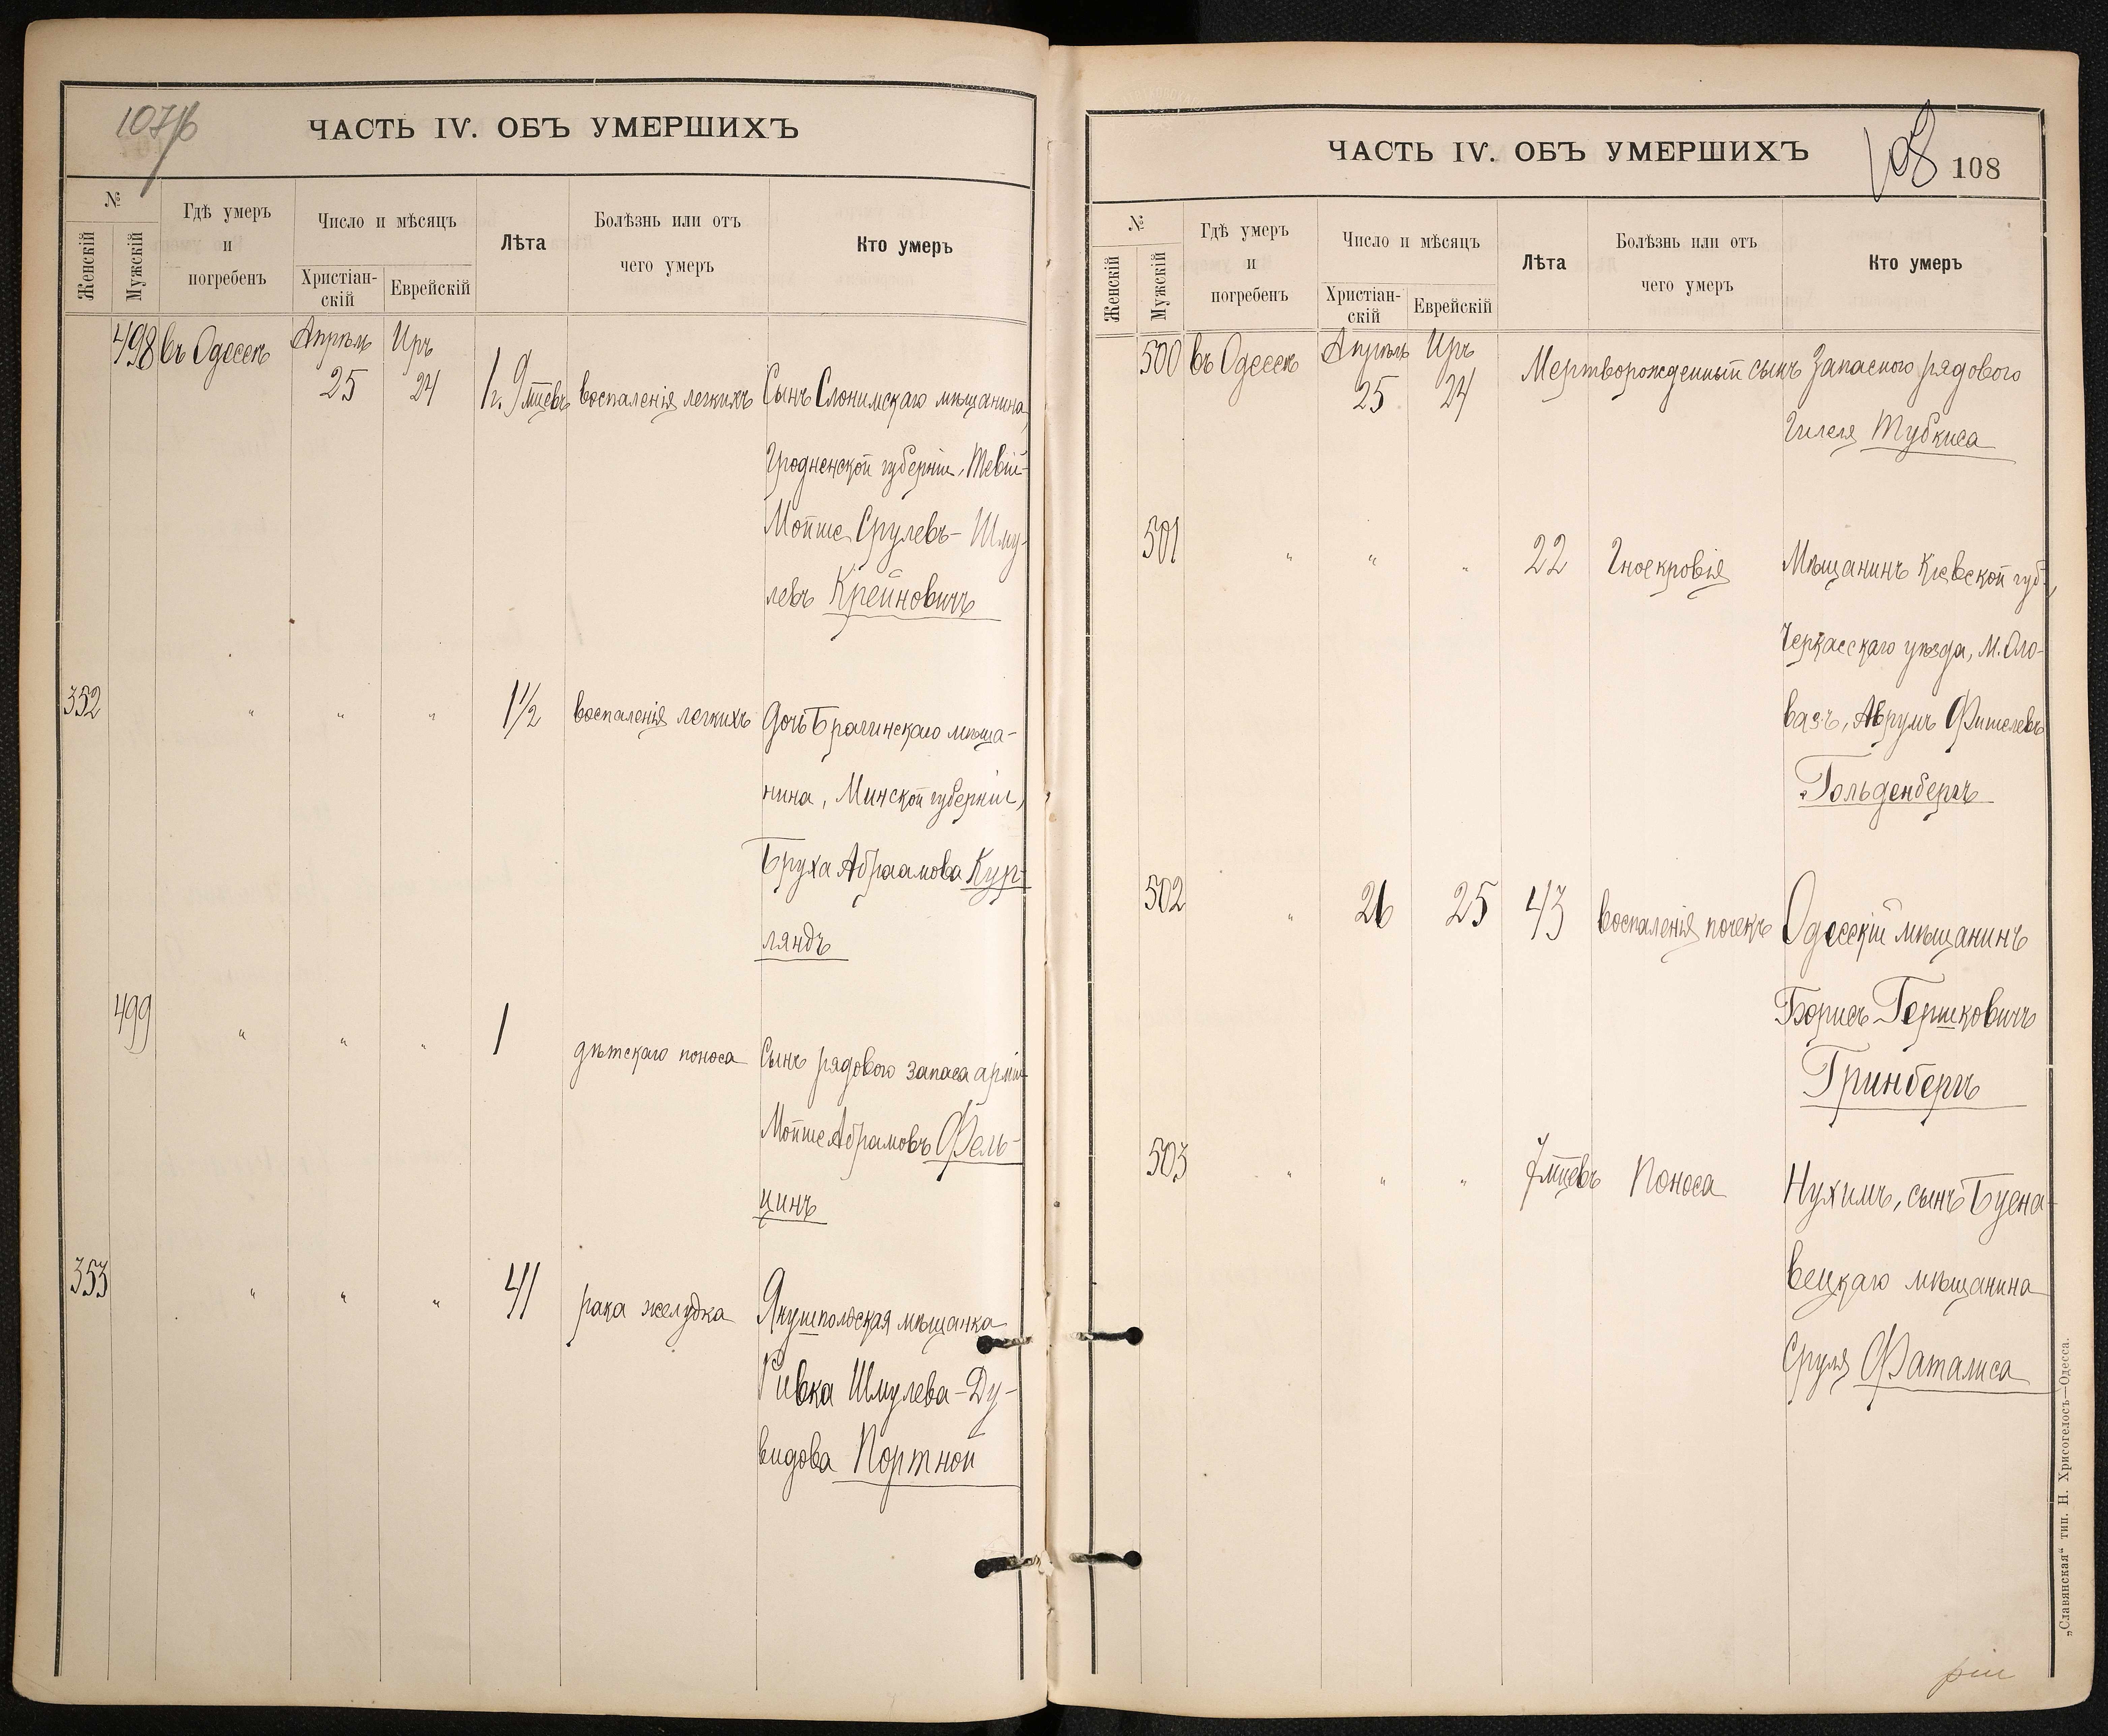 107/б
ЧАСТЬ IV. ОБЪ УМЕРШИХЪ
№
Женскій
Мужскій
Гдѣ умеръ
и
погребенъ
Число и мѣсяцъ
Христіан-
скій
Еврейскій
Лѣта
Болѣзнь или отъ
чего умеръ
Кто умеръ
498 въ Одессѣ Апрѣль Иръ
25 24 1 г. 9 мцевъ воспаленія легкихъ Сынъ Слонимскаго мѣщанина,
Гродненской губерніи, Тевій-
Мойше Срулевъ-Шму-
левъ Крейновичъ
352 " " " 1½ воспаленія легкихъ Дочь Брагинскаго мѣща-
нина, Минской губерніи,
Бруха Абраамова Кур-
ляндъ
499 " " " 1 дѣтскаго поноса Сынъ рядового запаса арміи
Мойше Абрамовъ Фель-
цинъ
353 " " " 41 рака желудка Янушпольская мѣщанка
Ривка Шмулева-Ду-
видова Портной
ЧАСТЬ IV. ОБЪ УМЕРШИХЪ
108 108
№
Женскій
Мужскій
Гдѣ умеръ
и
погребенъ
Число и мѣсяцъ
Христіан-
скій
Еврейскій
Лѣта
Болѣзнь или отъ
чего умеръ
Кто умеръ
500 въ Одессѣ Апрѣль Иръ Мертворожденный сынъ запасного рядового
25 24
Гилеля Тубкиса
501 " " " 22 Гноекровія Мѣщанинъ Кіевской губ.,
Черкасскаго уѣзда, м.
Аврумъ Фишелевъ
Гольденбергъ
502 " 26 25 43 воспаленія почекъ Одесскій мѣщанинъ
Борисъ Гершковичъ
Гринбергъ
503 " " " 7 мцевъ Поноса Нухимъ, сынъ Буена-
вецкаго мѣщанина
Сруля Фаталиса
„Славянская“ тип. Н. Хрисогелосъ—Одесса.